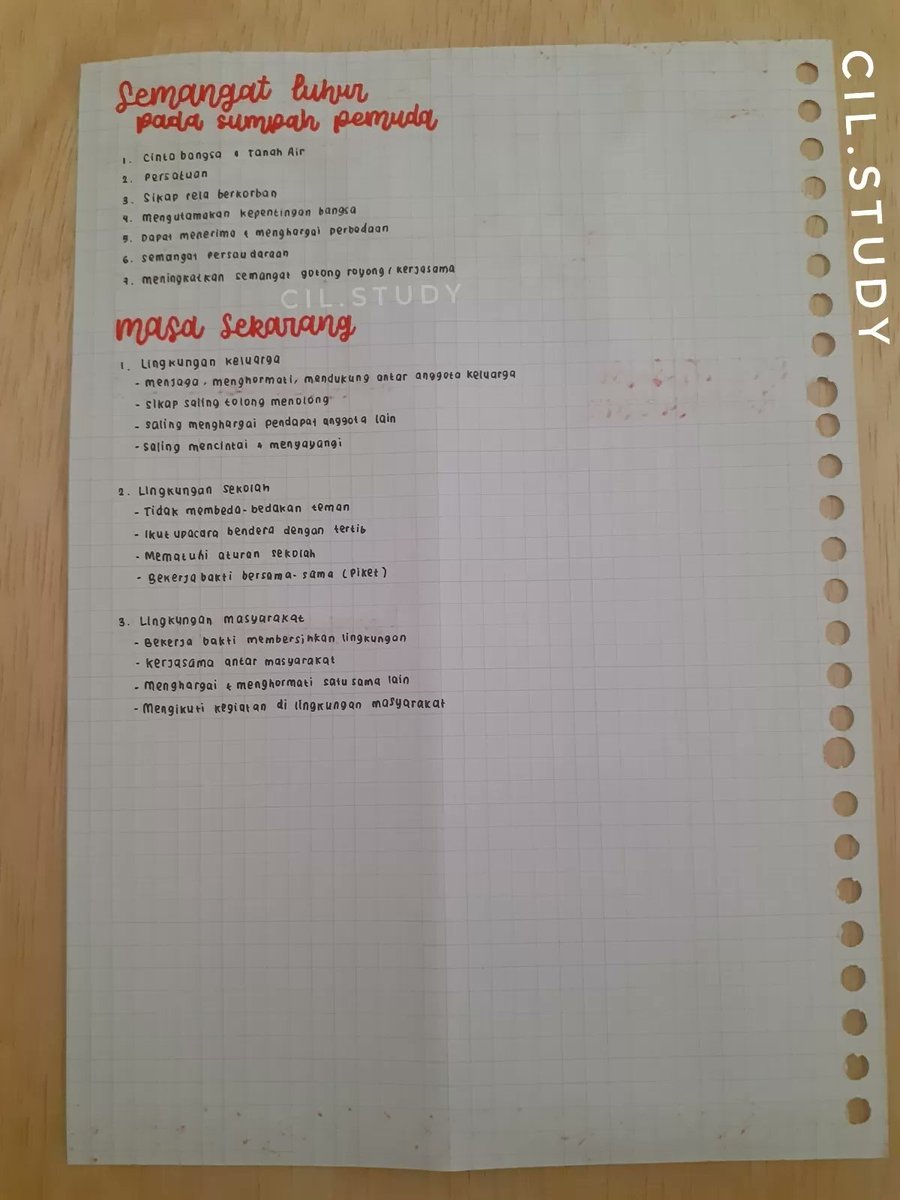 Semangat luhur
pada sumpah pemuda
1. Cinta bangsa & Tanah Air
2. Persatuan
3. Sikap rela berkorban
4. mengutamakan kepentingan bangsa
5. Dapat menerima & menghargai perbedaan
6. semangat persaudaraan
7. meningkatkan semangat gotong royong / kerjasama
CIL.STUDY
masa sekarang
1. Lingkungan keluarga
- menjaga, menghormati, mendukung antar anggota keluarga
- sikap saling tolong menolong
- saling menghargai pendapat anggota lain
- saling mencintai & menyayangi
2. Lingkungan sekolah
- Tidak membeda-bedakan teman
- Ikut upacara bendera dengan tertib
- Mematuhi aturan sekolah
- Bekerja bakti bersama-sama (Piket)
3. Lingkungan masyarakat
- Bekerja bakti membersihkan lingkungan
- kerjasama antar masyarakat
- Menghargai & menghormati satu sama lain
- Mengikuti kegiatan di lingkungan masyarakat
CIL.STUDY